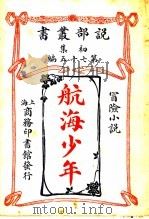 說部叢書
初集
第七十五編
冒險小說
航海少年
上海
商務印書館發行